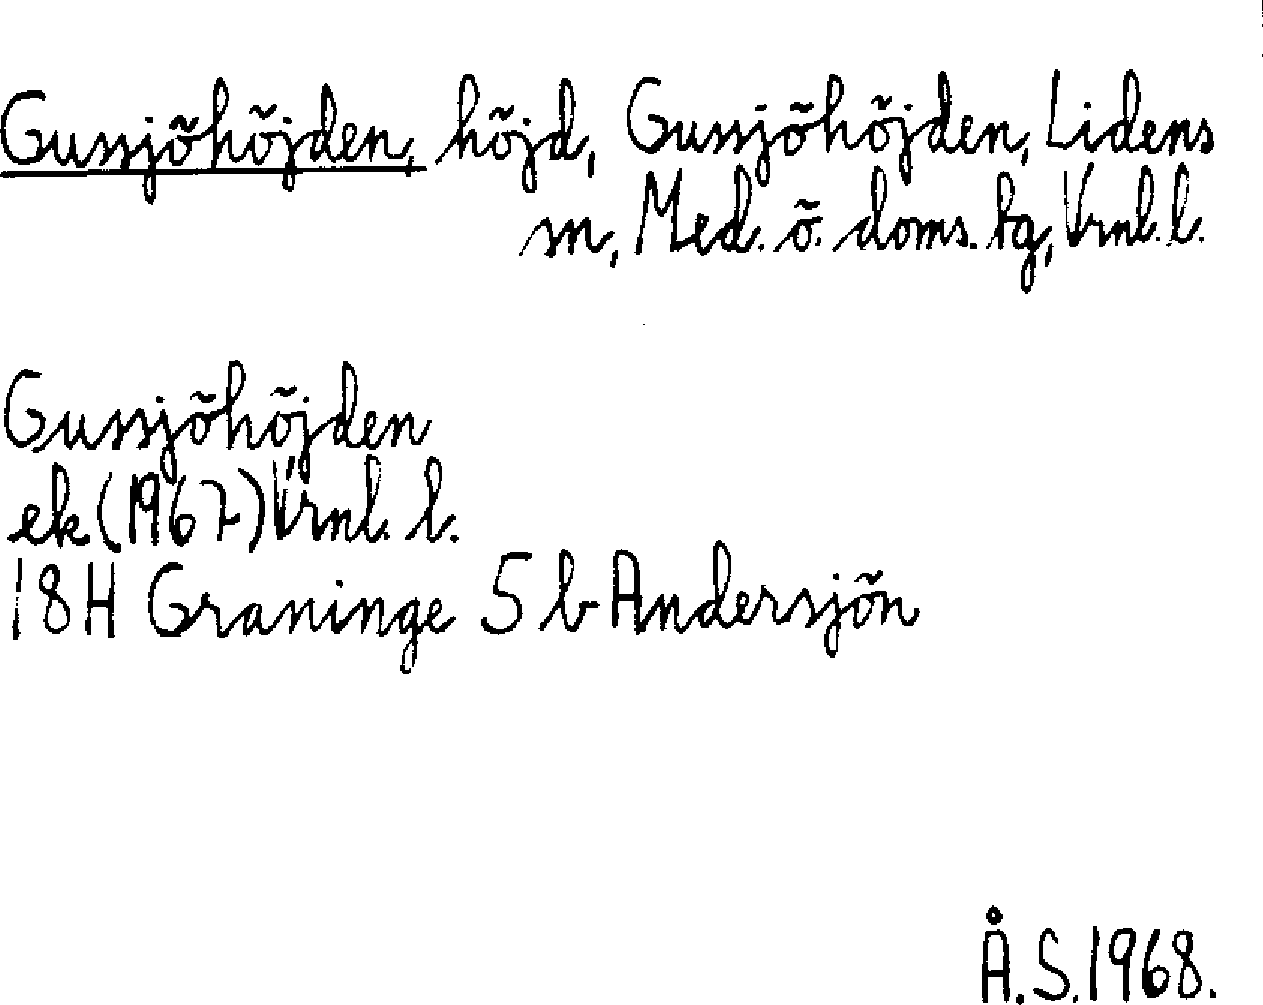 Gussjöhöjden, höjd, Gussjöhöjden, Lidens
sn, Med. ö. doms. tg, Vrnl. l.
Gussjöhöjden
ek (1967) Vrnl. l.
18H Graninge 5 b Andersjön
Å.S. 1968.